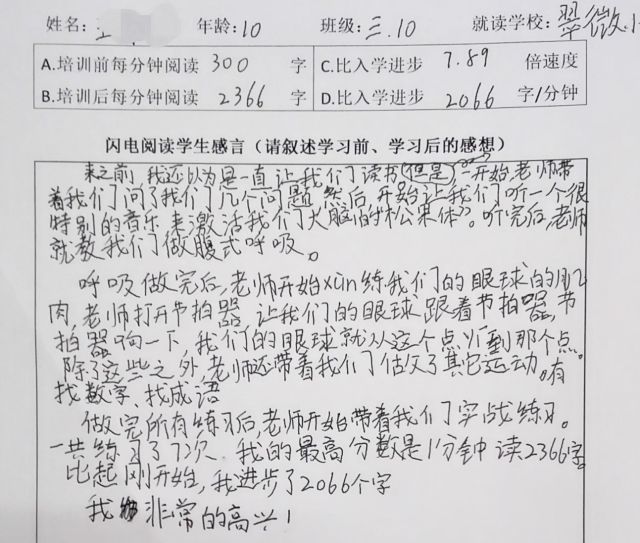 姓名: 王 年龄:10 班级:三.10 就读学校:翠微小
A.培训前每分钟阅读 300 字 C.比入学进步 7.89 倍速度
B.培训后每分钟阅读 2366 字 D.比入学进步 2066 字/分钟
闪电阅读学生感言（请叙述学习前、学习后的感想）
来之前,我还以为是一直让我们读书(但是)一开始,老师带
着我们问了我们几个问题,然后,开始让我们听一个很
特别的音乐,来激活我们大脑的“松果体”。听完后,老师
就教我们做腹式呼吸。
呼吸做完后,老师开始xùn练我们的眼球的肌
肉,老师打开节拍器,让我们的眼球跟着节拍器,节
拍器响一下,我们的眼球就从这个点到那个点。
除了这些之外,老师还带着我们做了其它运动。有
找数字、找成语
做完所有练习后,老师开始带着我们实战练习。
一共练习了72次,我的最高分数是1分钟读2366字。
比起刚开始,我进步了2066个字
我非常的高兴!